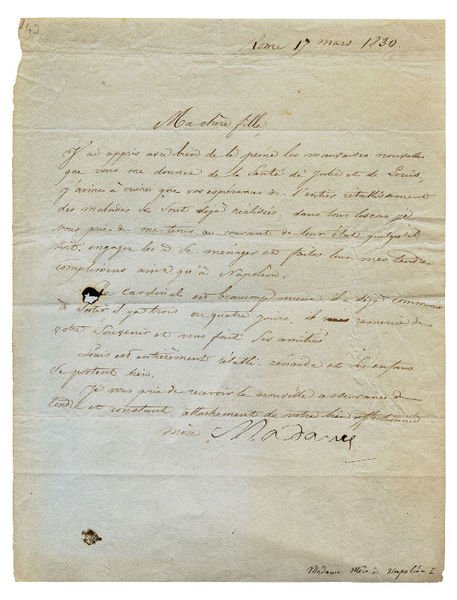 42
Rome 17 mars 1830.
Ma chère fille
J'ai appris avec bien de la peine les mauvaises nouvelles
que vous me donnez de la Santé de Julie et de Louis,
j'aime à croire que vos espérances de l'entier retablissement
des malades se sont dejà réalisées, dans tous les cas je
vous prie de me tenir au courant de leur état quelqu'il
soit, engagez les à se ménager et faites leur mes tendres
complimens ainsi qu'à Napoléon.
Le Cardinal est beaucoup mieux il a dejà commencé
à Sortir il y a trois ou quatre jours. il remercie de
votre Souvenir et vous fait Ses amitiés
Louis est entièrement rétabli. Zénaïde et les enfans
Se portent bien.
Je vous prie de recevoir la nouvelle assurance du
tendre et constant attachement de votre bien affectionnée
mère Madame
Madame Mère de Napoléon I